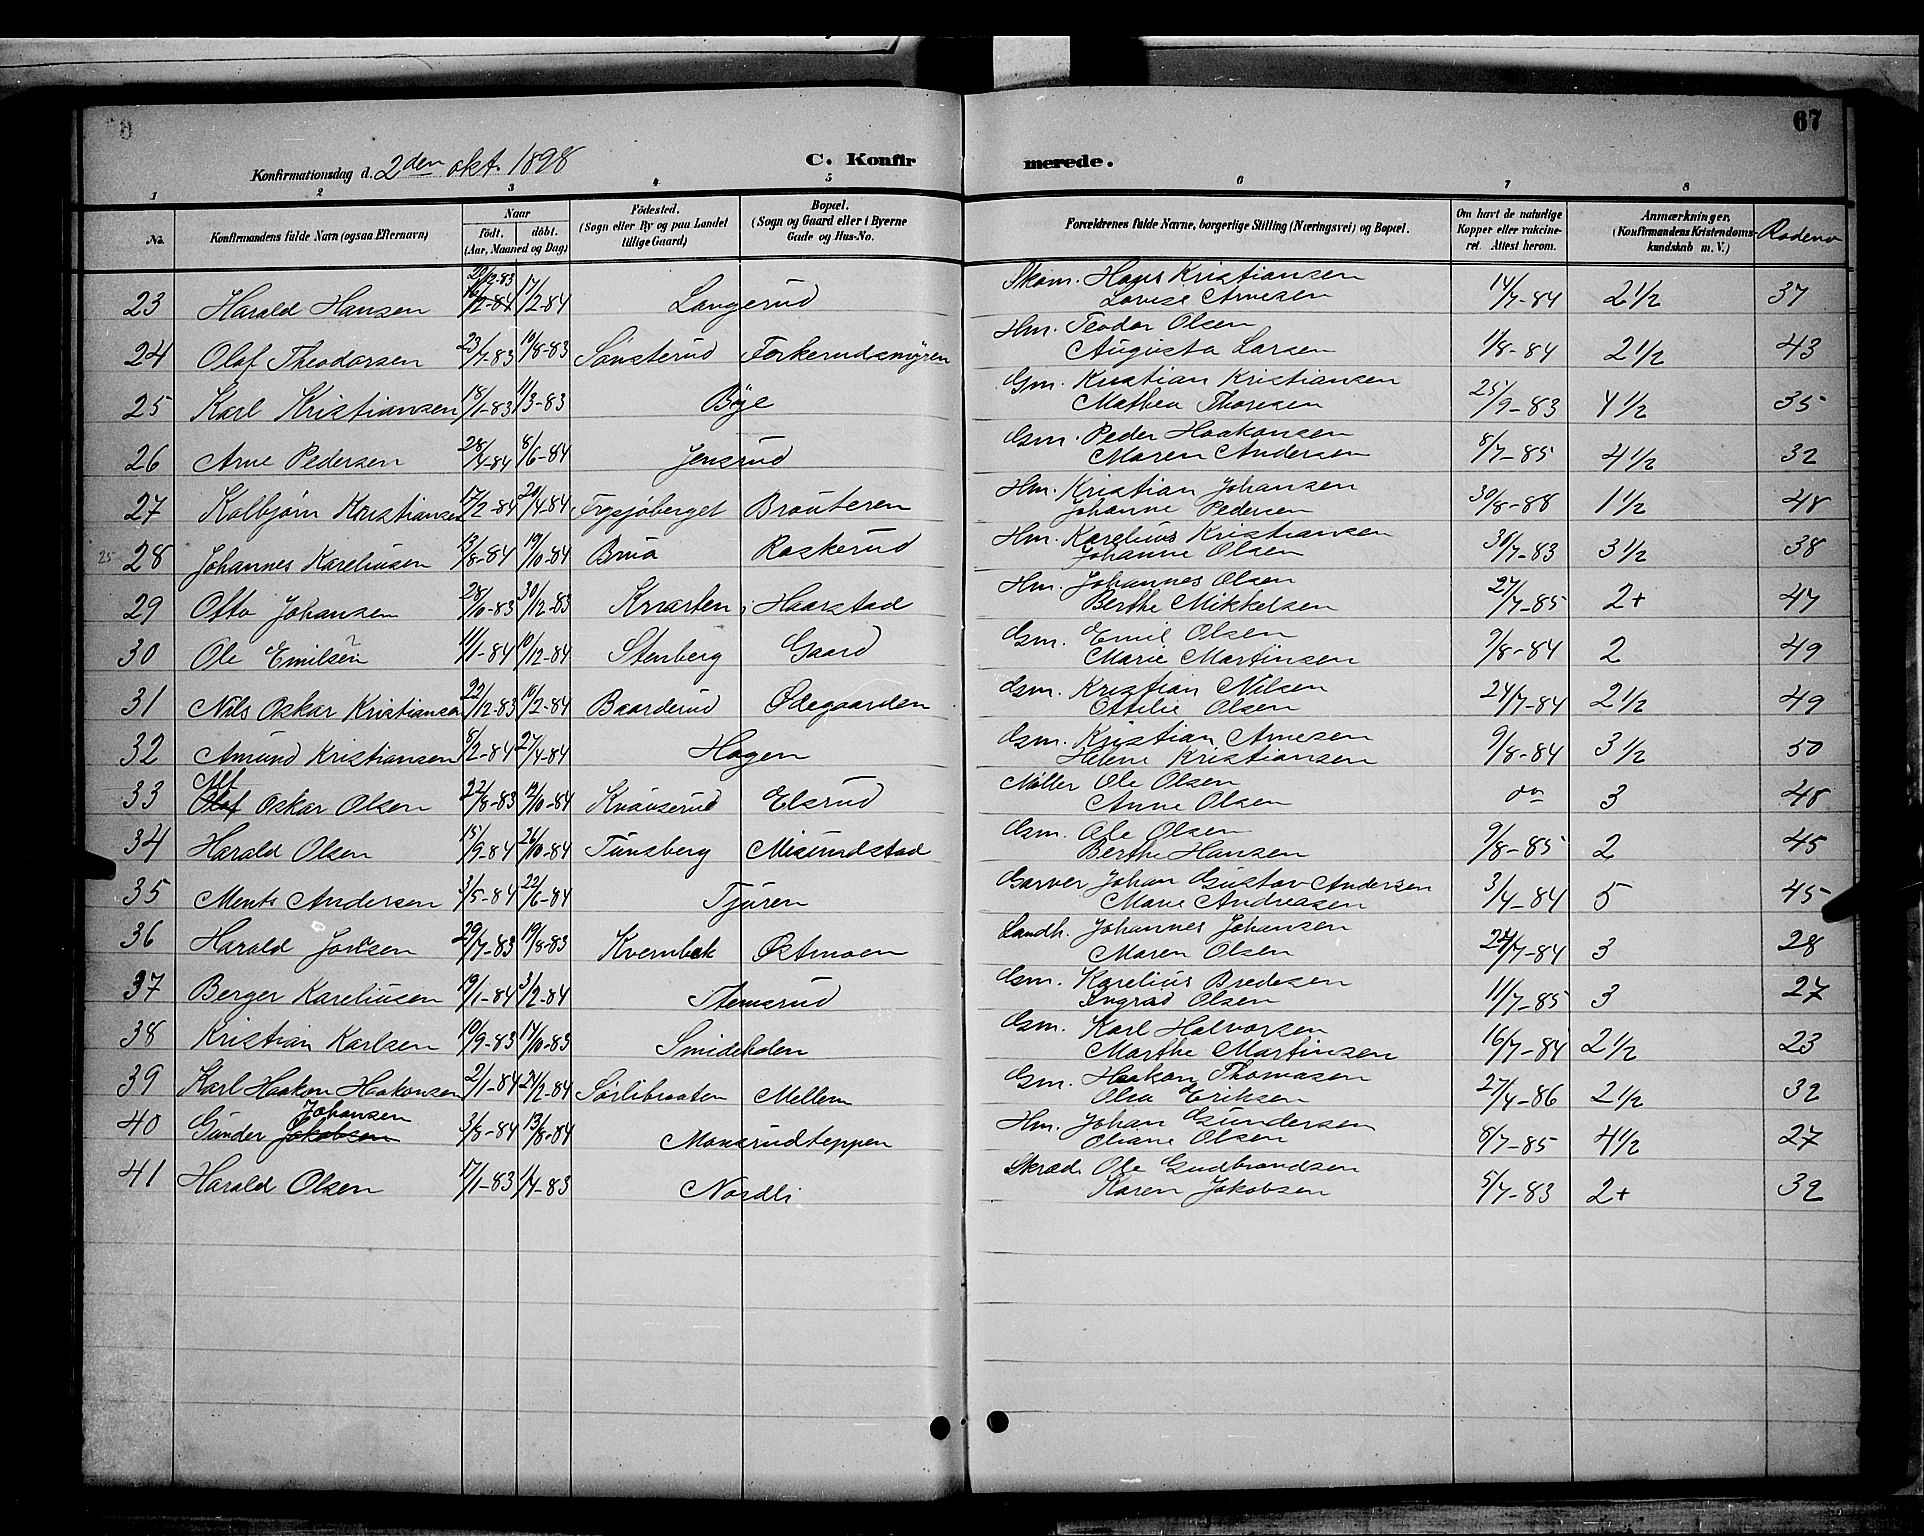 67
Konfirmationsdag d. 2den okt. 1898
C. Konfirmerede.
1 2 3 4 5 6 7 8
No. Konfirmandens fulde Navn (ogsaa Efternavn) Naar født, døbt. (Aar, Maaned og Dag) Fødested. (Sogn eller By og paa Landet tillige Gaard) Bopæl. (Sogn og Gaard eller i Byerne Gade og Hus-No. Forældrenes fulde Navne, borgerlige Stilling (Næringsvei) og Bopæl. Om havt de naturlige Kopper eller vakcineret. Attest herom. Anmærkninger. (Konfirmandens Kristendomskundskab m. V.) Rodeno
23 Harald Hansen 29/12-83 17/2-84 Langerud Skom. Hans Kristiansen 14/7-84 2 1/2 37
Lovise Arnesen
24 Olaf Theodorsen 23/7-83 19/8-83 Sønsterud Forkerudsmyren Hm. Teodor Olsen 1/8-84 2 1/2 43
Augusta Larsen
25 Karl Kristiansen 18/1-83 11/3-83 Bye Gm. Kristian Kristiansen 25/9-83 4 1/2 35
Mathea Thoresen
26 Arne Pedersen 28/4-84 8/6-84 Jensrud Gsm. Peder Haakonsen 8/7-85 4 1/2 32
Maren Andersen
27 Kolbjørn Kristiansen 17/2-84 20/4-84 Frysjøberget Brouteren Hm. Kristian Johansen 30/8-88 1 1/2 48
Johanne Pedersen
25 28 Johannes Kareliusen 13/8-84 19/10-84 Brua Roskerud Hm. Karelius Kristiansen 30/7-83 3 1/2 38
Johanne Olsen
29 Otto Johansen 28/10-83 30/12-83 Haarstad Hm. Johannes Olsen 27/7-85 2+ 47
Berthe Mikkelsen
30 Ole Emilsen 11/1-84 /12-84 Stenberg Gaard Gm. Emil Olsen 9/8-84 2 49
Marie Martinsen
31 Nils Oskar Kristiansen 22/12-83 10/2-84 Baarderud Ødegaarden Gsm. Kristian Nilsen 24/7-84 2 1/2 49
Ottilie Olsen
32 Amund Kristiansen 8/2-84 27/4-84 Hagen Gsm. Kristian Arnesen 9/8-84 3 1/2 50
Helene Kristiansen
33 Alf Olaf Oskar Olsen 22/8-83 /10-84 Knauserud Elsrud Møller Ole Olsen do 3 48
Anne Olsen
34 Harald Olsen 15/9-84 26/10-84 Tunsberg Misundstad Gsm. Ole Olsen 9/8-85 2 45
Berthe Hansen
35 Ments Andersen 3/5-84 22/6-84 Tjuren Garver Johan Gustav Andersen 3/4-84 5 45
Marie Andreasen
36 Harald 29/7-83 19/8-83 Kvernbek Østmoen Landh. Johannes Johansen 24/7-84 3 28
Maren Olsen
37 Berger Kareliusen 19/1-84 3/2-84 Themsrud Gsm. Karelius Bredesen 11/7-85 3 27
Ingrad Olsen
38 Kristian Karlsen 19/9-83 14/10-83 Smideholen Gsm. Karl Halvorsen 16/7-84 2 1/2 23
Marthe Martinsen
39 Karl Haakon Haakonsen 2/1-84 24/2-84 Sørlibraaten Mellem Gm. Haakon Thomasen 27/4-86 2 1/2 32
Olea Eriksen
40 Gunder Jakobsen Johansen 3/8-84 13/8-84 Monserudteppen Hm. Johan Gundersen 8/7-85 4 1/2 27
Oliane Olsen
41 Harald Olsen 17/1-83 1/4-83 Nordli Skræd. Ole Gudbrandsen 5/7-83 2+ 32
Karen Jakobsen